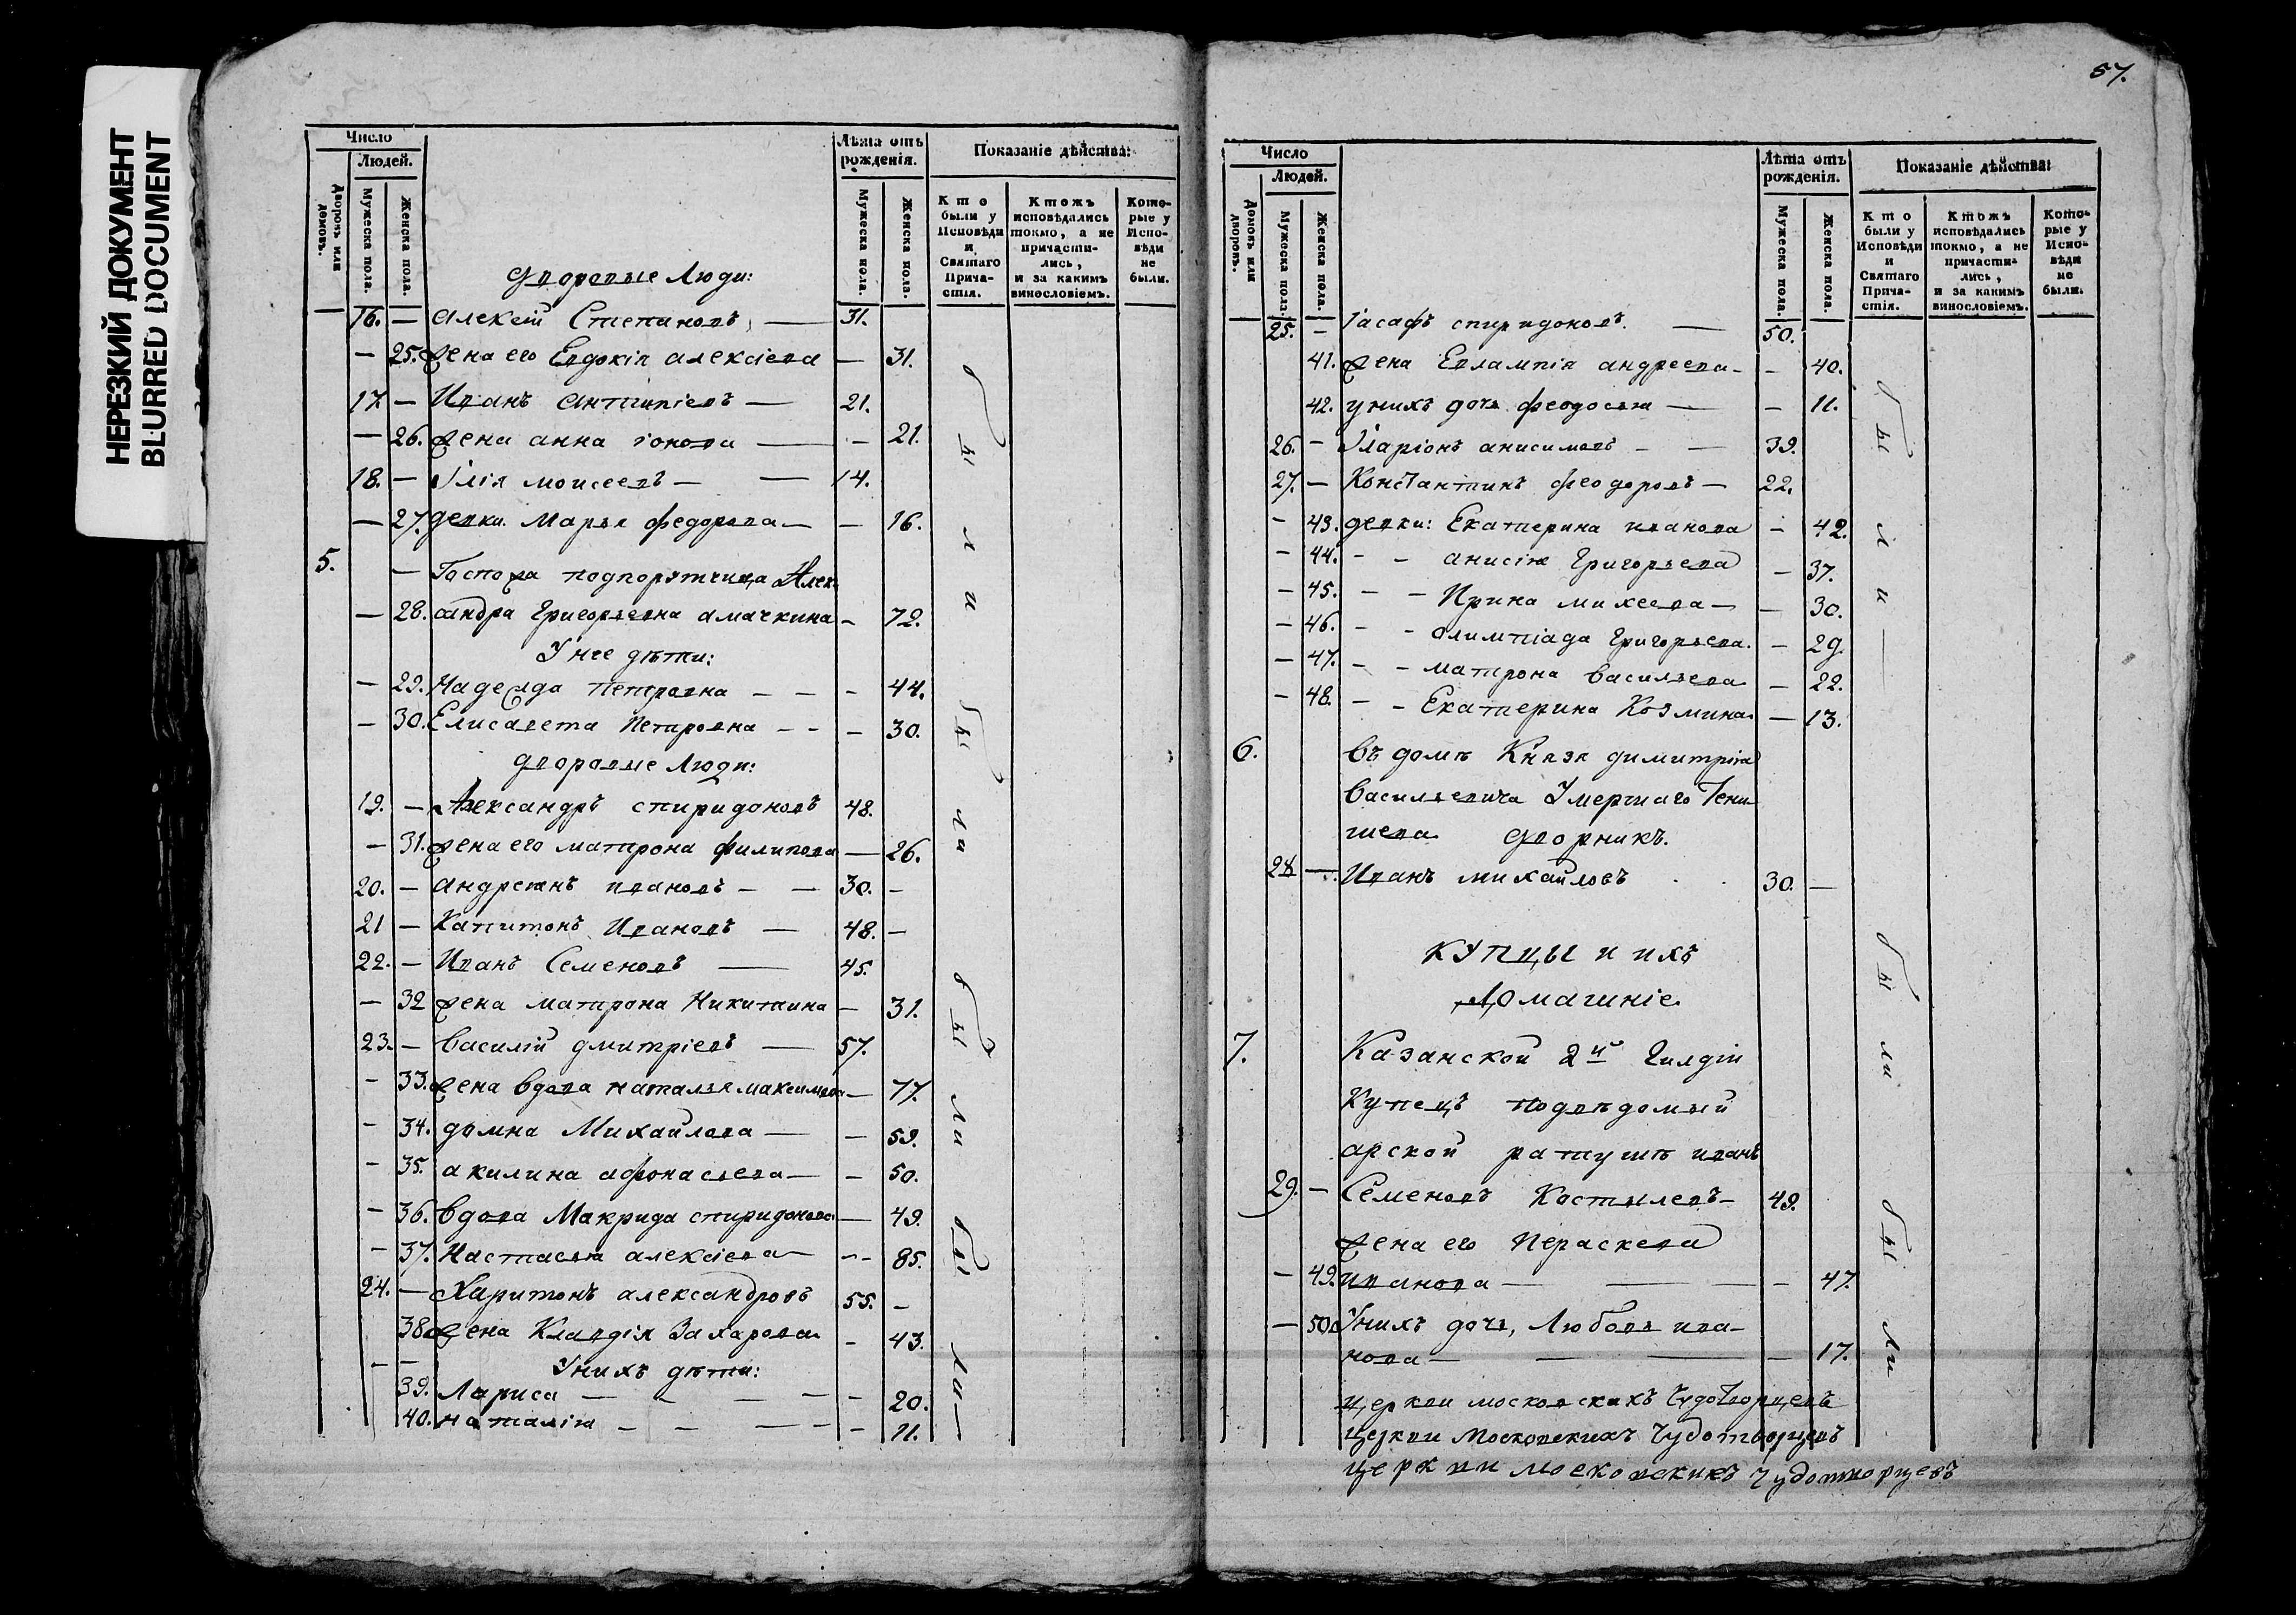 НЕРЕЗКИЙ ДОКУМЕНТ
BLURRED DOCUMENT
Число
Людей.
Дворовъ или домовъ.
Мужеска пола.
Женска пола.
Лѣта отъ рожденія.
Мужеска пола.
Женска пола.
Показаніе дѣйства:
Кто были у Исповѣди и Святаго Причастія.
Ктожъ исповѣдались токмо, а не причастились, и за какимъ винословіемъ.
Которые у Исповѣди не были.
Дворовые Люди:
16. — Алексей Степановъ, — 31.
— 25. жена его Евдокія алексіева — 31.
17. — Иванъ Антипіевъ — 21.
— 26. жена анна іонова — — 21.
18. — Илія моисеевъ — — 14.
— 27. девки. Марья федорова — — 16.
5. — Госпожа подпорутчица Алек-
— 28. сандра Григорьевна амачкина — 72.
У нее дѣти:
— 29. Надежда Петровна — — — 44.
— 30. Елисавета Петровна — — — 30.
дворовые Люди:
19. — Александръ спиридоновъ 48.
— 31. жена его матрона филипова — 26.
20. — андреянъ ивановъ — — 30. —
21 — Капитонъ Ивановъ — 48. —
22. — Иванъ Семеновъ — 45.
— 32 жена матрона Никитина — 31.
23. — Василій дмитріевъ — 57.
— 33. жена вдова наталья максимова — 77.
— 34. домна Михайлова — — 59.
— 35. акилина афонасьева — — 50.
— 36. вдова Макрида спиридонова — 49.
— 37. Настасья алексіева — — 85.
24. — Харитонъ александровъ 55. —
38. жена Клавдія Захарова — 43.
— — У нихъ дѣти:
39. Лариса — — — — — 20.
40. наталія — — — — — 11.
были
были
были
были —
57.
Число
Людей.
Домовъ или дворовъ.
Мужеска пола.
Женска пола.
Лѣта отъ рожденія.
Мужеска пола.
Женска пола.
Показаніе дѣйства:
Кто были у Исповѣди и Святаго Причастія.
Ктожъ исповѣдались токмо, а не причастились, и за какимъ винословіемъ.
Которые у Исповѣди не были.
25. — Іасафъ спиридоновъ. — 50.
41. жена Евлампія андреева — — 40.
42. у нихъ дочь феодосья — — 11.
26. — Иларіонъ анисимовъ — — 39.
27. — Константинъ феодоровъ — 22.
— 43. девки: Екатерина иванова — 42.
— 44. — — анисія Григорьева — 37.
— 45. — — Ирина михеева — — 30.
— 46. — — олимпіада Григорьева. — 29.
— 47. — — матрона Васильева — 22.
— 48. — — Екатерина Козмина — 13.
6. въ домѣ Князя димитрія
Васильевича Умершаго Тени-
шева дворникъ.
28 — Иванъ михайловъ 30. —
купцы и ихъ
Домашніе.
7. Казанской 2й Гилдіи
Купецъ подвѣдомый
арской ратушѣ иванъ
29. — Семеновъ Костылевъ — 49.
жена его Параскева
— 49. иванова — — — — 47.
— 50. У нихъ дочь, Любовь ива-
нова — — — — 17.
церкви московскихъ Чудотворцевъ
церкви Московскихъ Чудотворцевъ
церкви московскихъ Чудотворцевъ
были —
были
были